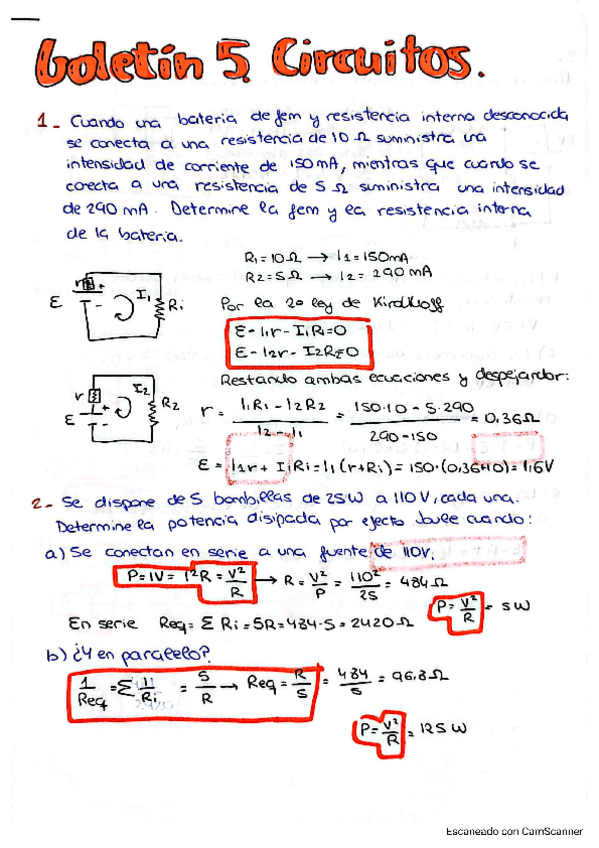 boletín 5. Circuitos.
1- Cuando una bateria de fem y resistencia interna desconocida
se conecta a una resistencia de 10 Ω suministra una
intensidad de corriente de 150 mA, mientras que cuando se
conecta a una resistencia de 5 Ω suministra una intensidad
de 290 mA. Determine la fem y la resistencia interna
de la bateria.
R1 = 10 Ω → I1 = 150 mA
R2 = 5 Ω → I2 = 290 mA
r + I1 Ri
ε
Por la 2a ley de Kirchhoff
ε - I1r - I1R1 = 0
ε - I2r - I2R2 = 0
Restando ambas ecuaciones y despejando:
r + I2 R2
ε
r = (I1R1 - I2R2) / (I2 - I1) = (150·10 - 5·290) / (290 - 150) = 0,36 Ω
ε = I1r + I1Ri = I1 (r + Ri) = 150·(0,36+10) = 1,6 V
2- Se dispone de 5 bombillas de 25W a 110V, cada una.
Determine la potencia disipada por efecto Joule cuando:
a) Se conectan en serie a una fuente de 110V.
P = IV = I²R = V²/R → R = V²/P = 110²/25 = 484 Ω
P = V²/R = 5 W
En serie Req = Σ Ri = 5R = 484·5 = 2420 Ω
b) ¿Y en paralelo?
1/Req = Σ 1/Ri = 5/R → Req = R/5 = 484/5 = 96,8 Ω
P = V²/R = 125 W
Escaneado con CamScanner